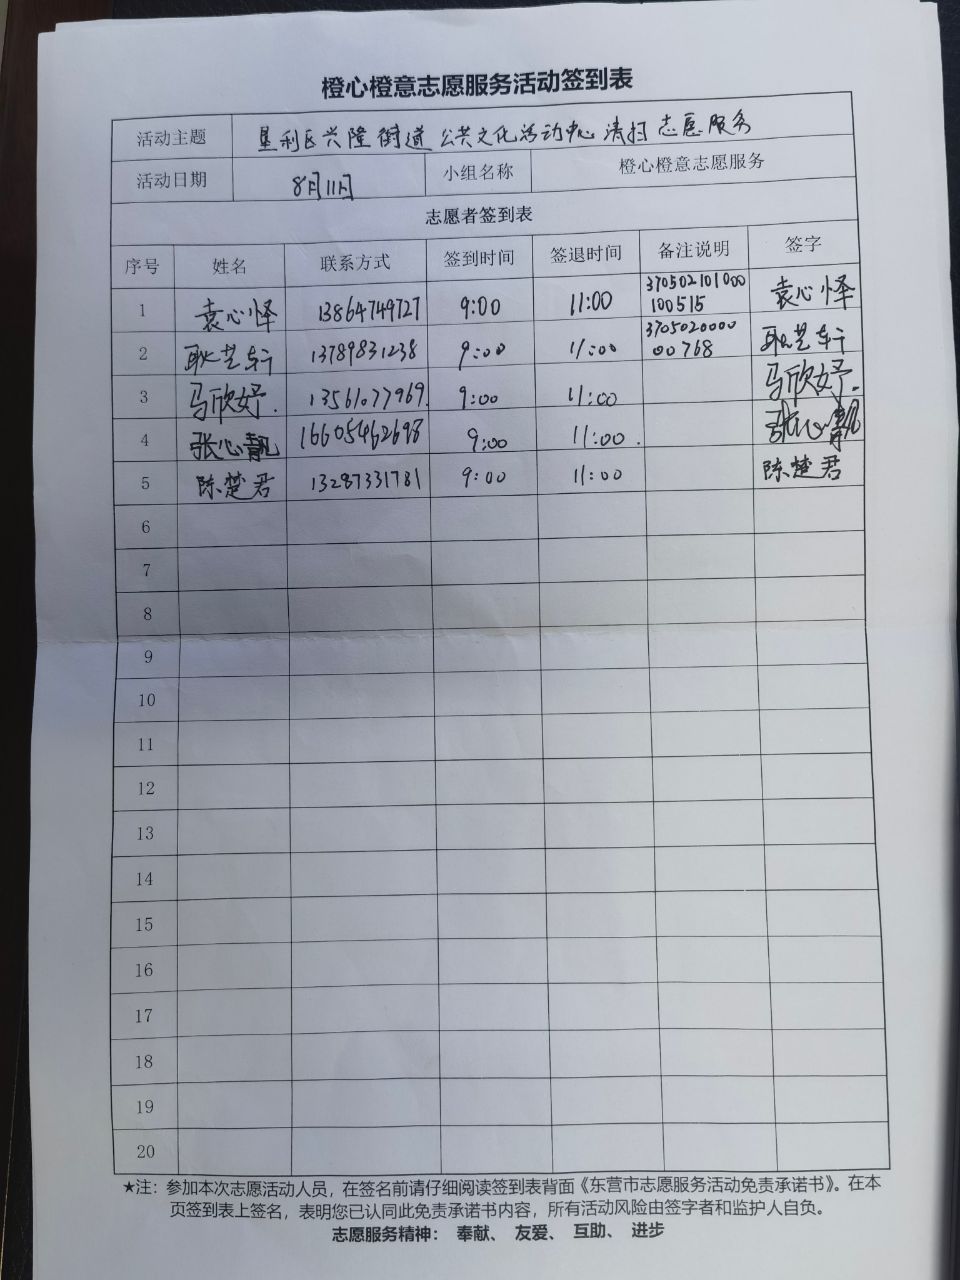 橙心橙意志愿服务活动签到表
活动主题 垦利区兴隆街道公共文化活动中心清扫志愿服务
活动日期 8月11日 小组名称 橙心橙意志愿服务
志愿者签到表
序号 姓名 联系方式 签到时间 签退时间 备注说明 签字
1 袁心怿 13864749727 9:00 11:00 370502101000100515 袁心怿
2 耿艺轩 13789831238 9:00 11:00 370502000000768 耿艺轩
3 马欣妤. 13561077969. 9:00 11:00 马欣妤.
4 张心靓 16605462698 9:00 11:00. 张心靓
5 陈楚君 13287331781 9:00 11:00 陈楚君
6
7
8
9
10
11
12
13
14
15
16
17
18
19
20
★注：参加本次志愿活动人员，在签名前请仔细阅读签到表背面《东营市志愿服务活动免责承诺书》。在本
页签到表上签名，表明您已认同此免责承诺书内容，所有活动风险由签字者和监护人自负。
志愿服务精神： 奉献、 友爱、 互助、 进步